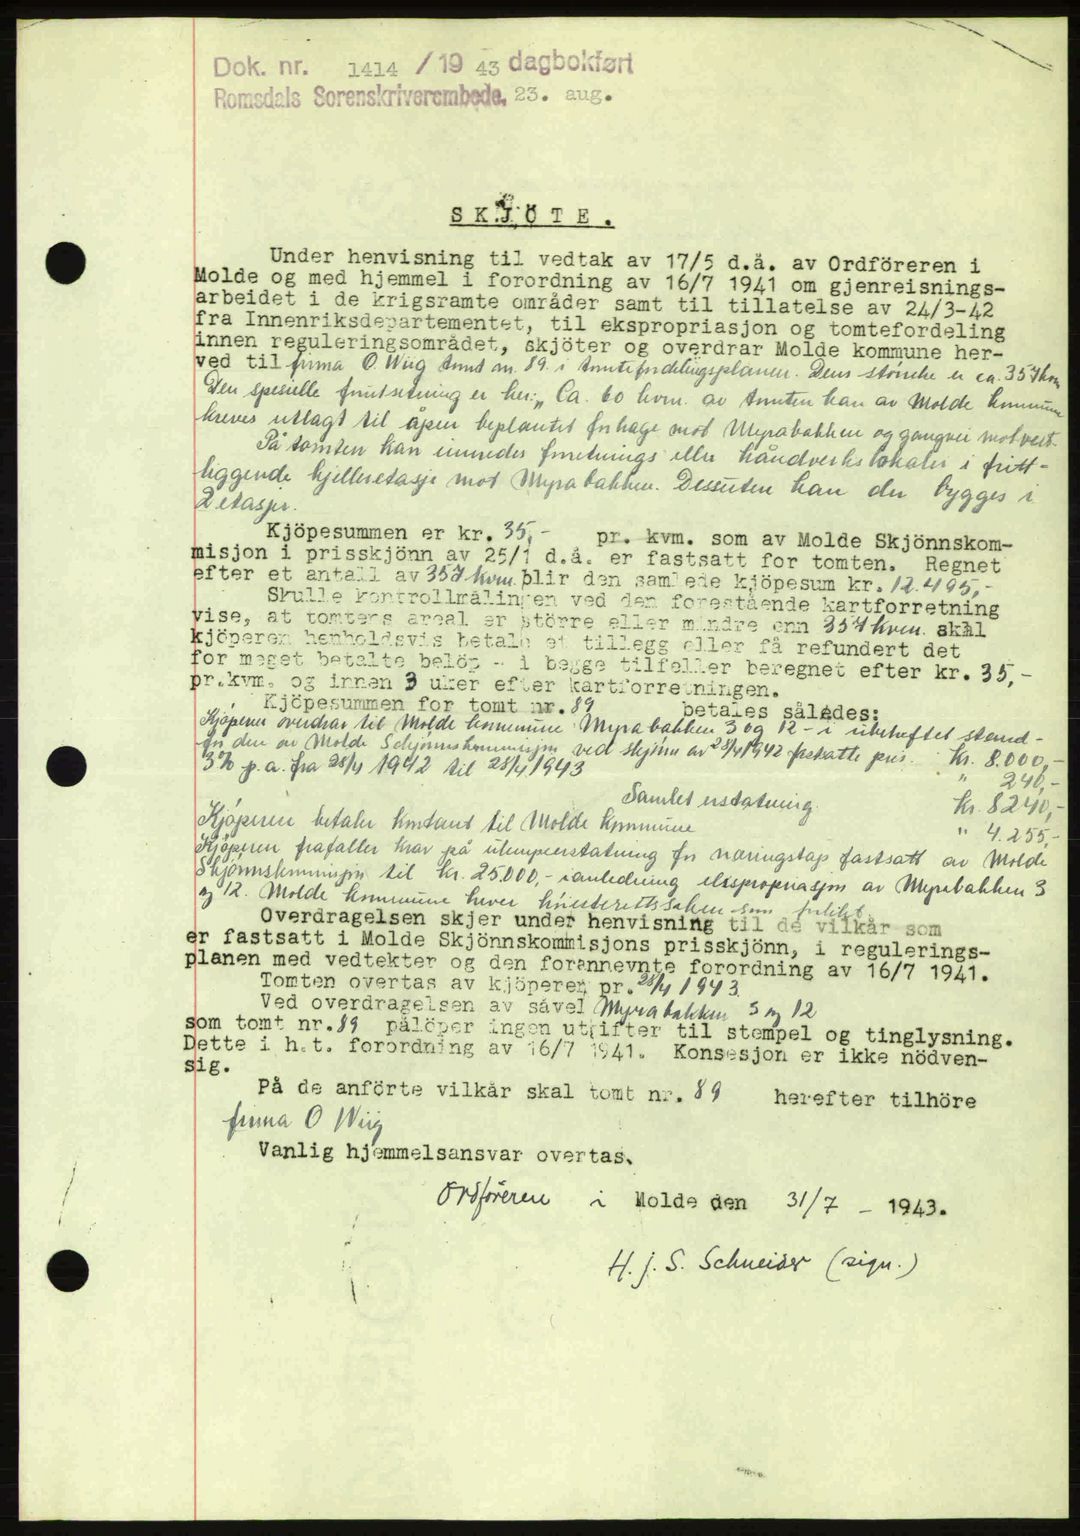 Dok. nr. 1414 /19 43 dagbokført
Romsdals Sorenskriverembede, 23. aug.
SKJÖTE.
Under henvisning til vedtak av 17/5 d.å. av Ordföreren i
Molde og med hjemmel i forordning av 16/7 1941 om gjenreisnings-
arbeidet i de krigsramte områder samt til tillatelse av 24/3-42
fra Innenriksdepartementet, til ekspropriasjon og tomtefordeling
innen reguleringsområdet, skjöter og overdrar Molde kommune her-
ved til firma O. Wiig tomt nr. 89 i tomtefordelingsplanen. Dens størrelse er ca. 357 kvm
Den spesielle forutsetning er her: „Ca. 60 kvm. av tomten kan av Molde kommune
kreves utlagt til åpen beplantet forhage mot Myrabakken og gangvei mot vest.
På tomten kan innredes forretnings eller håndverkslokaler i fritt-
liggende kjelleretasje mot Myrabakken. Dessuten kan der bygges i
2 etasjer.
Kjöpesummen er kr. 35,- pr. kvm. som av Molde Skjönnskom-
misjon i prisskjönn av 25/1 d.å. er fastsatt for tomten. Regnet
efter et antall av 357 kvm. blir den samlede kjöpesum kr. 12.495,-
Skulle kontrollmålingen ved den forestående kartforretning
vise, at tomtens areal er större eller mindre enn 357 kvm. skal
kjöperen henholdsvis betale et tillegg eller få refundert det
for meget betalte belöp - i begge tilfeller beregnet efter kr. 35,-
pr.kvm. og innen 3 uker efter kartforretningen.
Kjöpesummen for tomt nr. 89 betales således:
Kjöperen overdrar til Molde kommune Myrabakken 3 og 12 - i ubeheftet stand -
for den av Molde Schjønnskommisjon ved skjønn av 28/4 1942 fastsatte pris. kr. 8.000,-
3% p.a. fra 28/4 1942 til 28/4 1943 " 240,-
Samlet erstatning kr. 8240,-
Kjöperen betaler kontant til Molde kommune " 4.255,-
Kjöperen frafaller krav på ulempeerstatning for næringstap fastsatt av Molde
Skjønnskommisjon til kr. 25.000,- i anledning ekspropriasjon av Myrabakken 3
og 12. Molde kommune hever höiesterettssaken som forliket.
Overdragelsen skjer under henvisning til de vilkår som
er fastsatt i Molde Skjönnskommisjons prisskjönn, i regulerings-
planen med vedtekter og den forannevnte forordning av 16/7 1941.
Tomten overtas av kjöperen pr. 28/4 1943
Ved overdragelsen av såvel Myrabakken 3 og 12
som tomt nr. 89 pålöper ingen utgifter til stempel og tinglysning.
Dette i h.t. forordning av 16/7 1941. Konsesjon er ikke nödven-
sig.
På de anförte vilkår skal tomt nr. 89 herefter tilhöre
firma O Wiig
Vanlig hjemmelsansvar overtas.
Ordføreren i Molde den 31/7 - 1943.
H. J. S. Schneider (sign.)